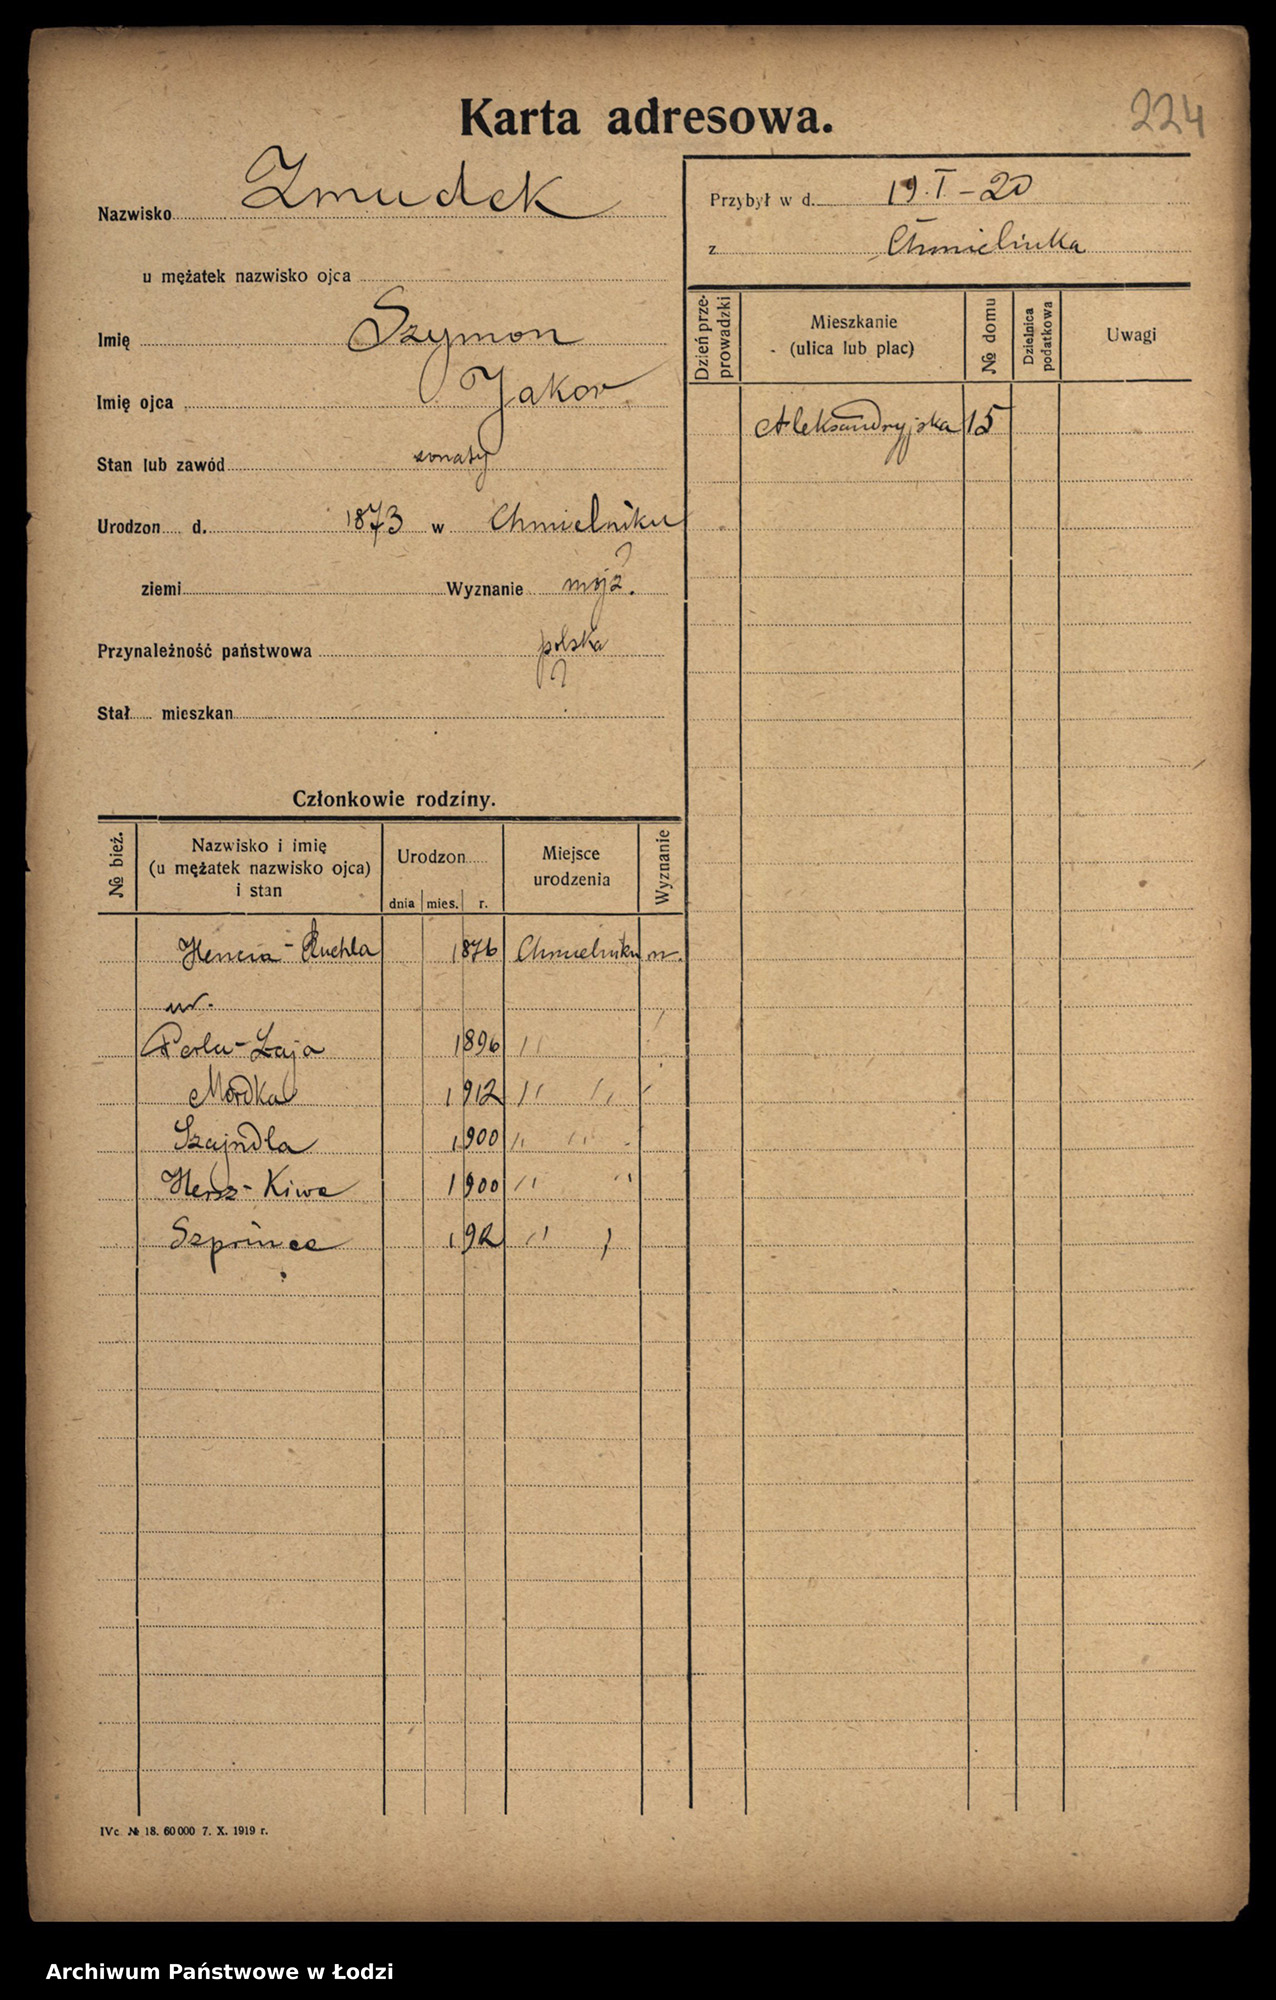 Karta adresowa.
224
Nazwisko Zmudek
u mężatek nazwisko ojca
Imię Szymon
Imię ojca Jakov
Stan lub zawód zonaty
Urodzon d. 1873 w Chmielniku
ziemi Wyznanie mojż.
Przynależność państwowa polska
Stał mieszkan
Przybył w d. 19.I-20
z Chmielinka
Dzień przeprowadzki
Mieszkanie (ulica lub plac)
№ domu
Dzielnica podatkowa
Uwagi
Aleksandryjska 15
Członkowie rodziny.
№ bież.
Nazwisko i imię
(u mężatek nazwisko ojca)
i stan
Urodzon
dnia mies. r.
Miejsce
urodzenia
Wyznanie
Hencia-Ruchla 1876 Chmielniku m.
Perla-Łaja 1896 " 
Mordka 1912 " "
Szajndla 1900 " "
Hersz-Kiwa 1900 " "
Szprince "
IVc № 18. 60000 7. X. 1919 r.
Archiwum Państwowe w Łodzi